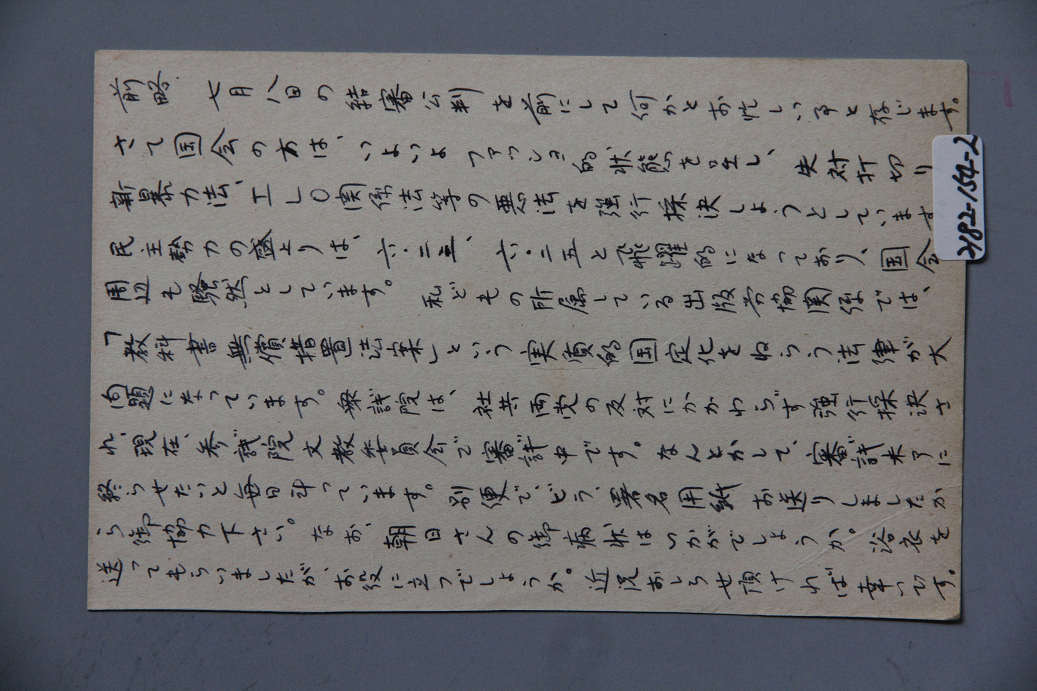 前略　七月八日の結審公判を前にして何かとお忙しい事と存じます。
さて国会の方は、いよいよファッショ的状態を呈し、失対打切り
新暴力法、ILO関係法等の悪法を強行採決しようとしています
民主勢力の盛上りは、六・二三、六・二五と飛躍的になっており、国会
周辺も騒然としています。　私どもの所属している出版労協関係では、
「教科書無償措置法案」という実質的国定化をねらう法律が大
問題になっています。衆議院は、社共両党の反対にかかわらず強行採決さ
れ、現在、参議院文教委員会で審議中です。なんとかして、審議未了に
終らせたいと毎日斗っています。別便で、どう、署名用紙お送りしましたか
ら御協力下さい。なお、朝日さんの御病状はいかがでしょうか。浴衣を
送ってもらいましたが、お役に立つでしょうか。近況おしらせ頂ければ幸いです。
2182-154-2